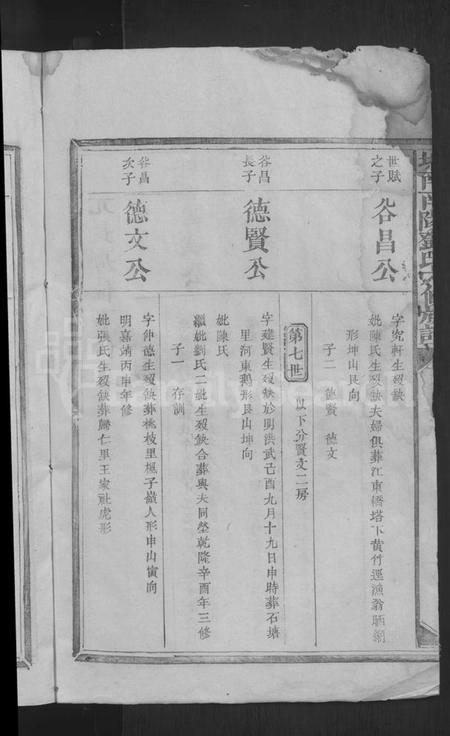 世賦
之子
谷昌公
字究軒生歿缺
妣陳氏生歿缺夫婦俱葬江東橋塔下黄竹逕漁翁晒網
形坤山艮向
子二 德賢 德文
第七世 以下分賢文二房
谷昌
長子
德賢公
字建賢生歿缺於明洪武己酉九月十九日申時葬石塘
里河東鵝形艮山坤向
妣陳氏
繼妣劉氏二妣生歿缺合葬與夫同塋乾隆辛酉年三修
子一 存訓
谷昌
次子
德文公
字仲德生歿缺葬桃枝里楓子嶺人形申山寅向
明嘉靖丙申年修
妣張氏生歿缺葬歸仁里王家社虎形